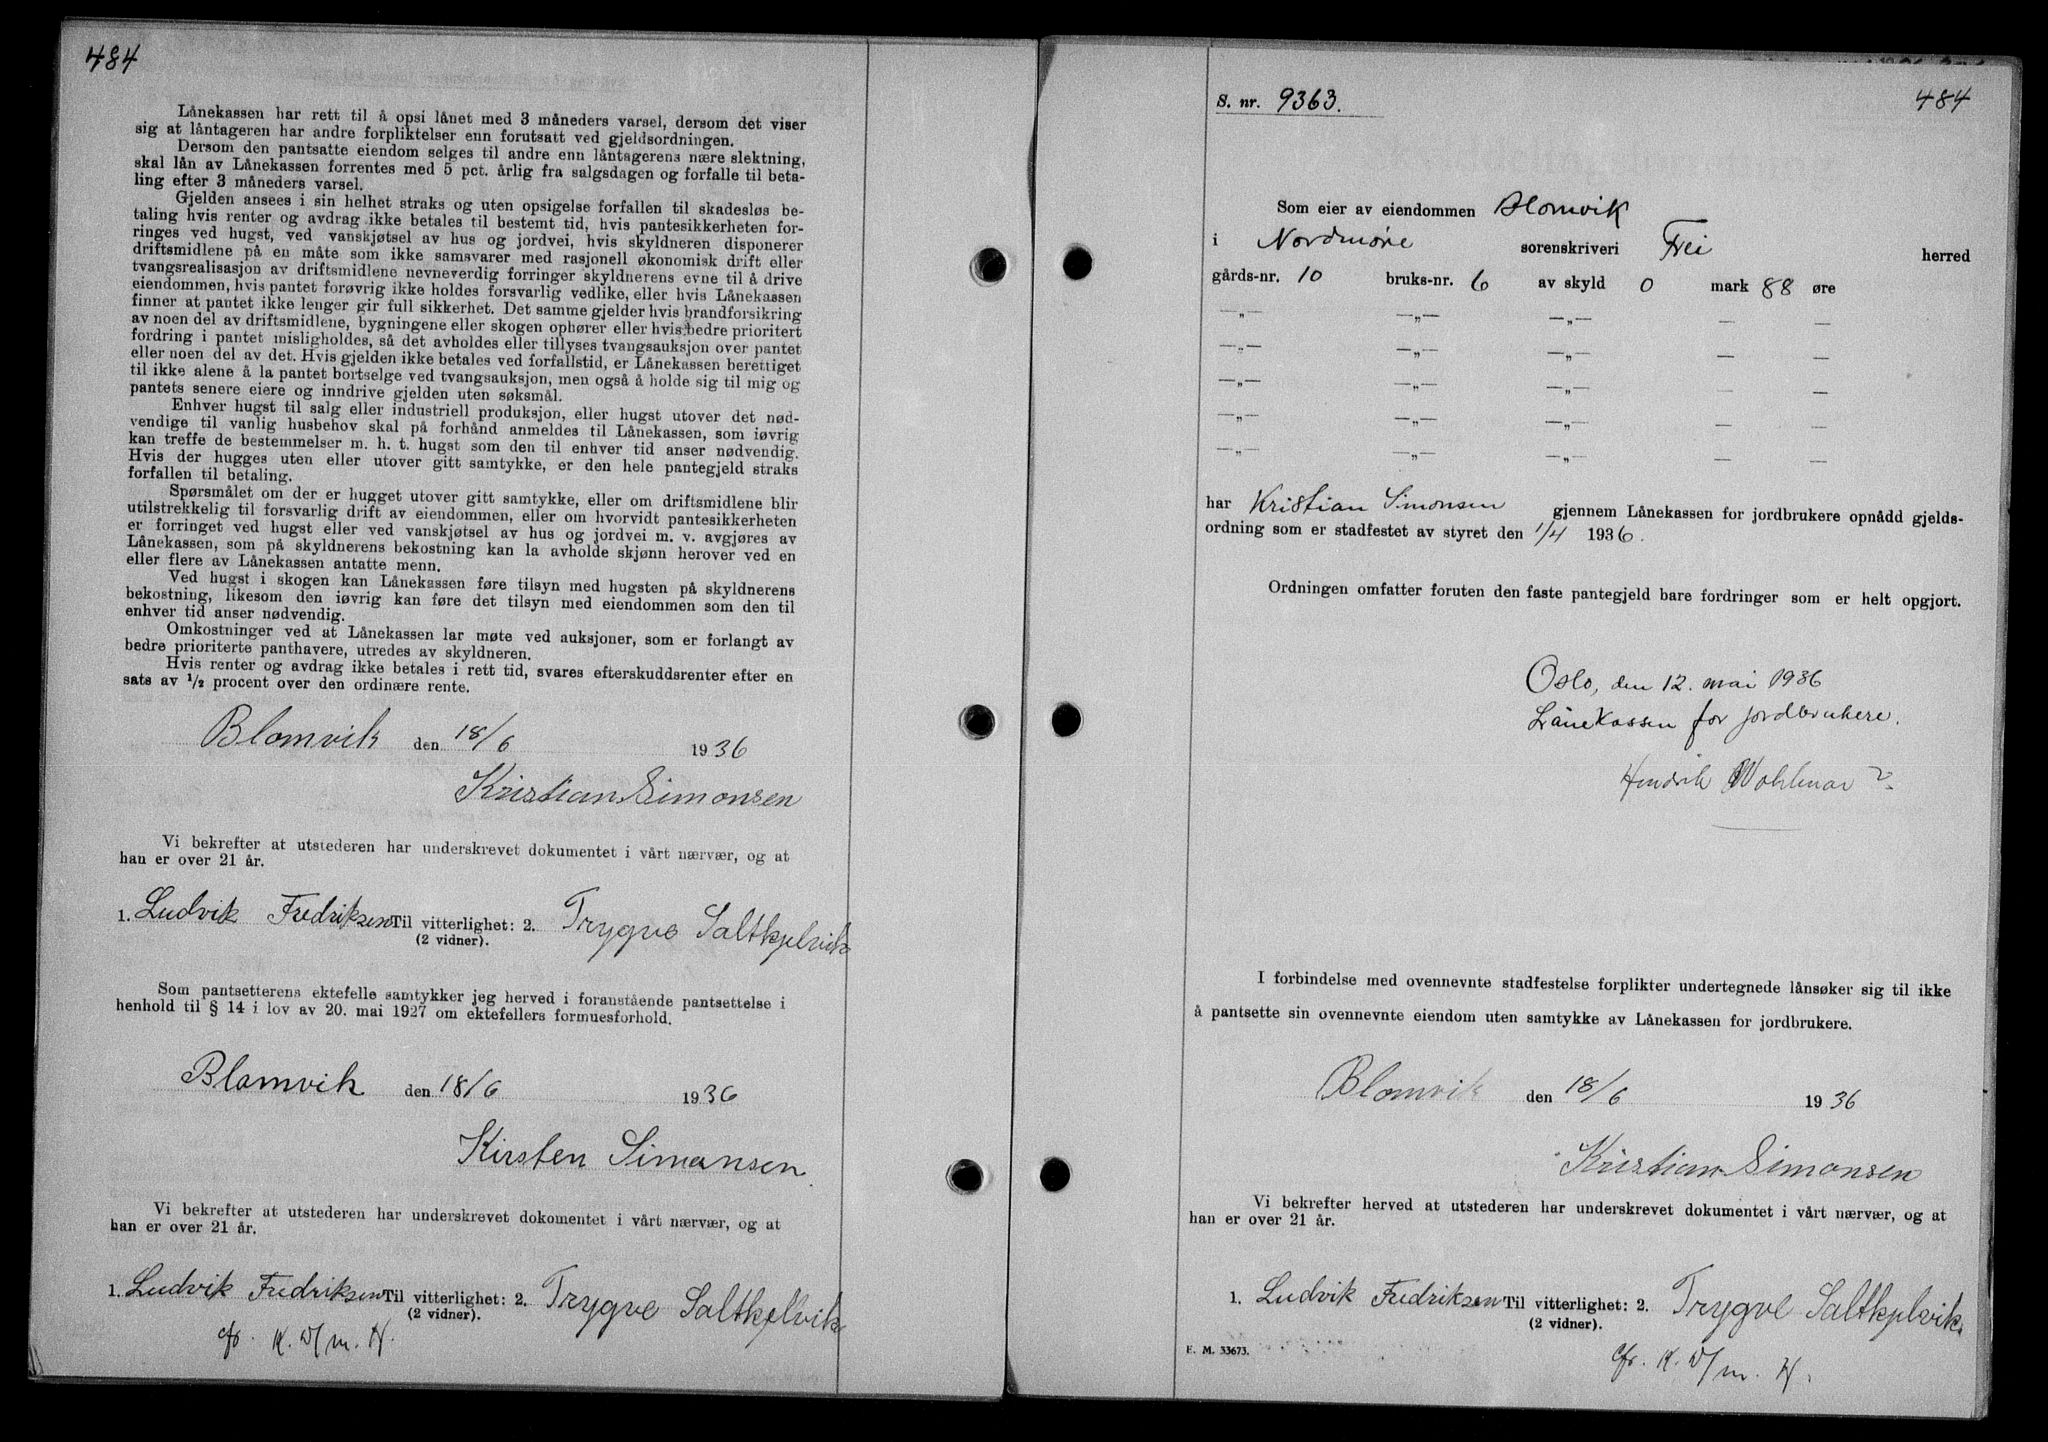 484
Lånekassen har rett til å opsi lånet med 3 måneders varsel, dersom det viser
sig at låntageren har andre forpliktelser enn forutsatt ved gjeldsordningen.
Dersom den pantsatte eiendom selges til andre enn låntagerens nære slektning,
skal lån av Lånekassen forrentes med 5 pct. årlig fra salgsdagen og forfalle til beta-
ling efter 3 måneders varsel.
Gjelden ansees i sin helhet straks og uten opsigelse forfallen til skadesløs be-
taling hvis renter og avdrag ikke betales til bestemt tid, hvis pantesikkerheten for-
ringes ved hugst, ved vanskjøtsel av hus og jordvei, hvis skyldneren disponerer
driftsmidlene på en måte som ikke samsvarer med rasjonell økonomisk drift eller
tvangsrealisasjon av driftsmidlene nevneverdig forringer skyldnerens evne til å drive
eiendommen, hvis pantet forøvrig ikke holdes forsvarlig vedlike, eller hvis Lånekassen
finner at pantet ikke lenger gir full sikkerhet. Det samme gjelder hvis brandforsikring
av noen del av driftsmidlene, bygningene eller skogen ophører eller hvis bedre prioritert
fordring i pantet misligholdes, så det avholdes eller tillyses tvangsauksjon over pantet
eller noen del av det. Hvis gjelden ikke betales ved forfallstid, er Lånekassen berettiget
til ikke alene å la pantet bortselge ved tvangsauksjon, men også å holde sig til mig og
pantets senere eiere og inndrive gjelden uten søksmål.
Enhver hugst til salg eller industriell produksjon, eller hugst utover det nød-
vendige til vanlig husbehov skal på forhånd anmeldes til Lånekassen, som iøvrig
kan treffe de bestemmelser m. h. t. hugst som den til enhver tid anser nødvendig.
Hvis der hugges uten eller utover gitt samtykke, er den hele pantegjeld straks
forfallen til betaling.
Spørsmålet om der er hugget utover gitt samtykke, eller om driftsmidlene blir
utilstrekkelig til forsvarlig drift av eiendommen, eller om hvorvidt pantesikkerheten
er forringet ved hugst eller ved vanskjøtsel av hus og jordvei m. v. avgjøres av
Lånekassen, som på skyldnerens bekostning kan la avholde skjønn herover ved en
eller flere av Lånekassen antatte menn.
Ved hugst i skogen kan Lånekassen føre tilsyn med hugsten på skyldnerens
bekostning, likesom den iøvrig kan føre det tilsyn med eiendommen som den til
enhver tid anser nødvendig.
Omkostninger ved at Lånekassen lar møte ved auksjoner, som er forlangt av
bedre prioriterte panthavere, utredes av skyldneren.
Hvis renter og avdrag ikke betales i rett tid, svares efterskuddsrenter efter en
sats av 1/2 procent over den ordinære rente.
Blomvik den 18/6 1936
Kristian Simonsen
Vi bekrefter at utstederen har underskrevet dokumentet i vårt nærvær, og at
han er over 21 år.
1. Ludvik Fredriksen Til vitterlighet: 2. Trygve Saltkjelvik
(2 vidner).
Som pantsetterens ektefelle samtykker jeg herved i foranstående pantsettelse i
henhold til § 14 i lov av 20. mai 1927 om ektefellers formuesforhold.
Blomvik den 18/6 1936
Kirsten Simonsen.
Vi bekrefter at utstederen har underskrevet dokumentet i vårt nærvær, og at
han er over 21 år.
1. Ludvik Fredriksen Til vitterlighet: 2. Trygve Saltkjelvik
(2 vidner).
484
S. nr. 9363.
Som eier av eiendommen Blomvik
i Nordmøre sorenskriveri Frei herred
gårds-nr. 10 bruks-nr. 6 av skyld 0 mark 88 øre
—„— —„— —„— — —
—„— —„— —„— — —
—„— —„— —„— — —
—„— —„— —„— — —
—„— —„— —„— — —
har Kristian Simonsen gjennem Lånekassen for jordbrukere opnådd gjelds-
ordning som er stadfestet av styret den 1/4 1936.
Ordningen omfatter foruten den faste pantegjeld bare fordringer som er helt opgjort.
Oslo, den 12. mai 1936
Lånekassen for jordbrukere.
Hendrik
I forbindelse med ovennevnte stadfestelse forplikter undertegnede lånsøker sig til ikke
å pantsette sin ovennevnte eiendom uten samtykke av Lånekassen for jordbrukere.
Blomvik den 18/6 1936
Kristian Simonsen
Vi bekrefter herved at utstederen har underskrevet dokumentet i vårt nærvær, og at
han er over 21 år.
1. Ludvik Fredriksen Til vitterlighet: 2. Trygve Saltkjelvik
(2 vidner).
E. M. 33673.